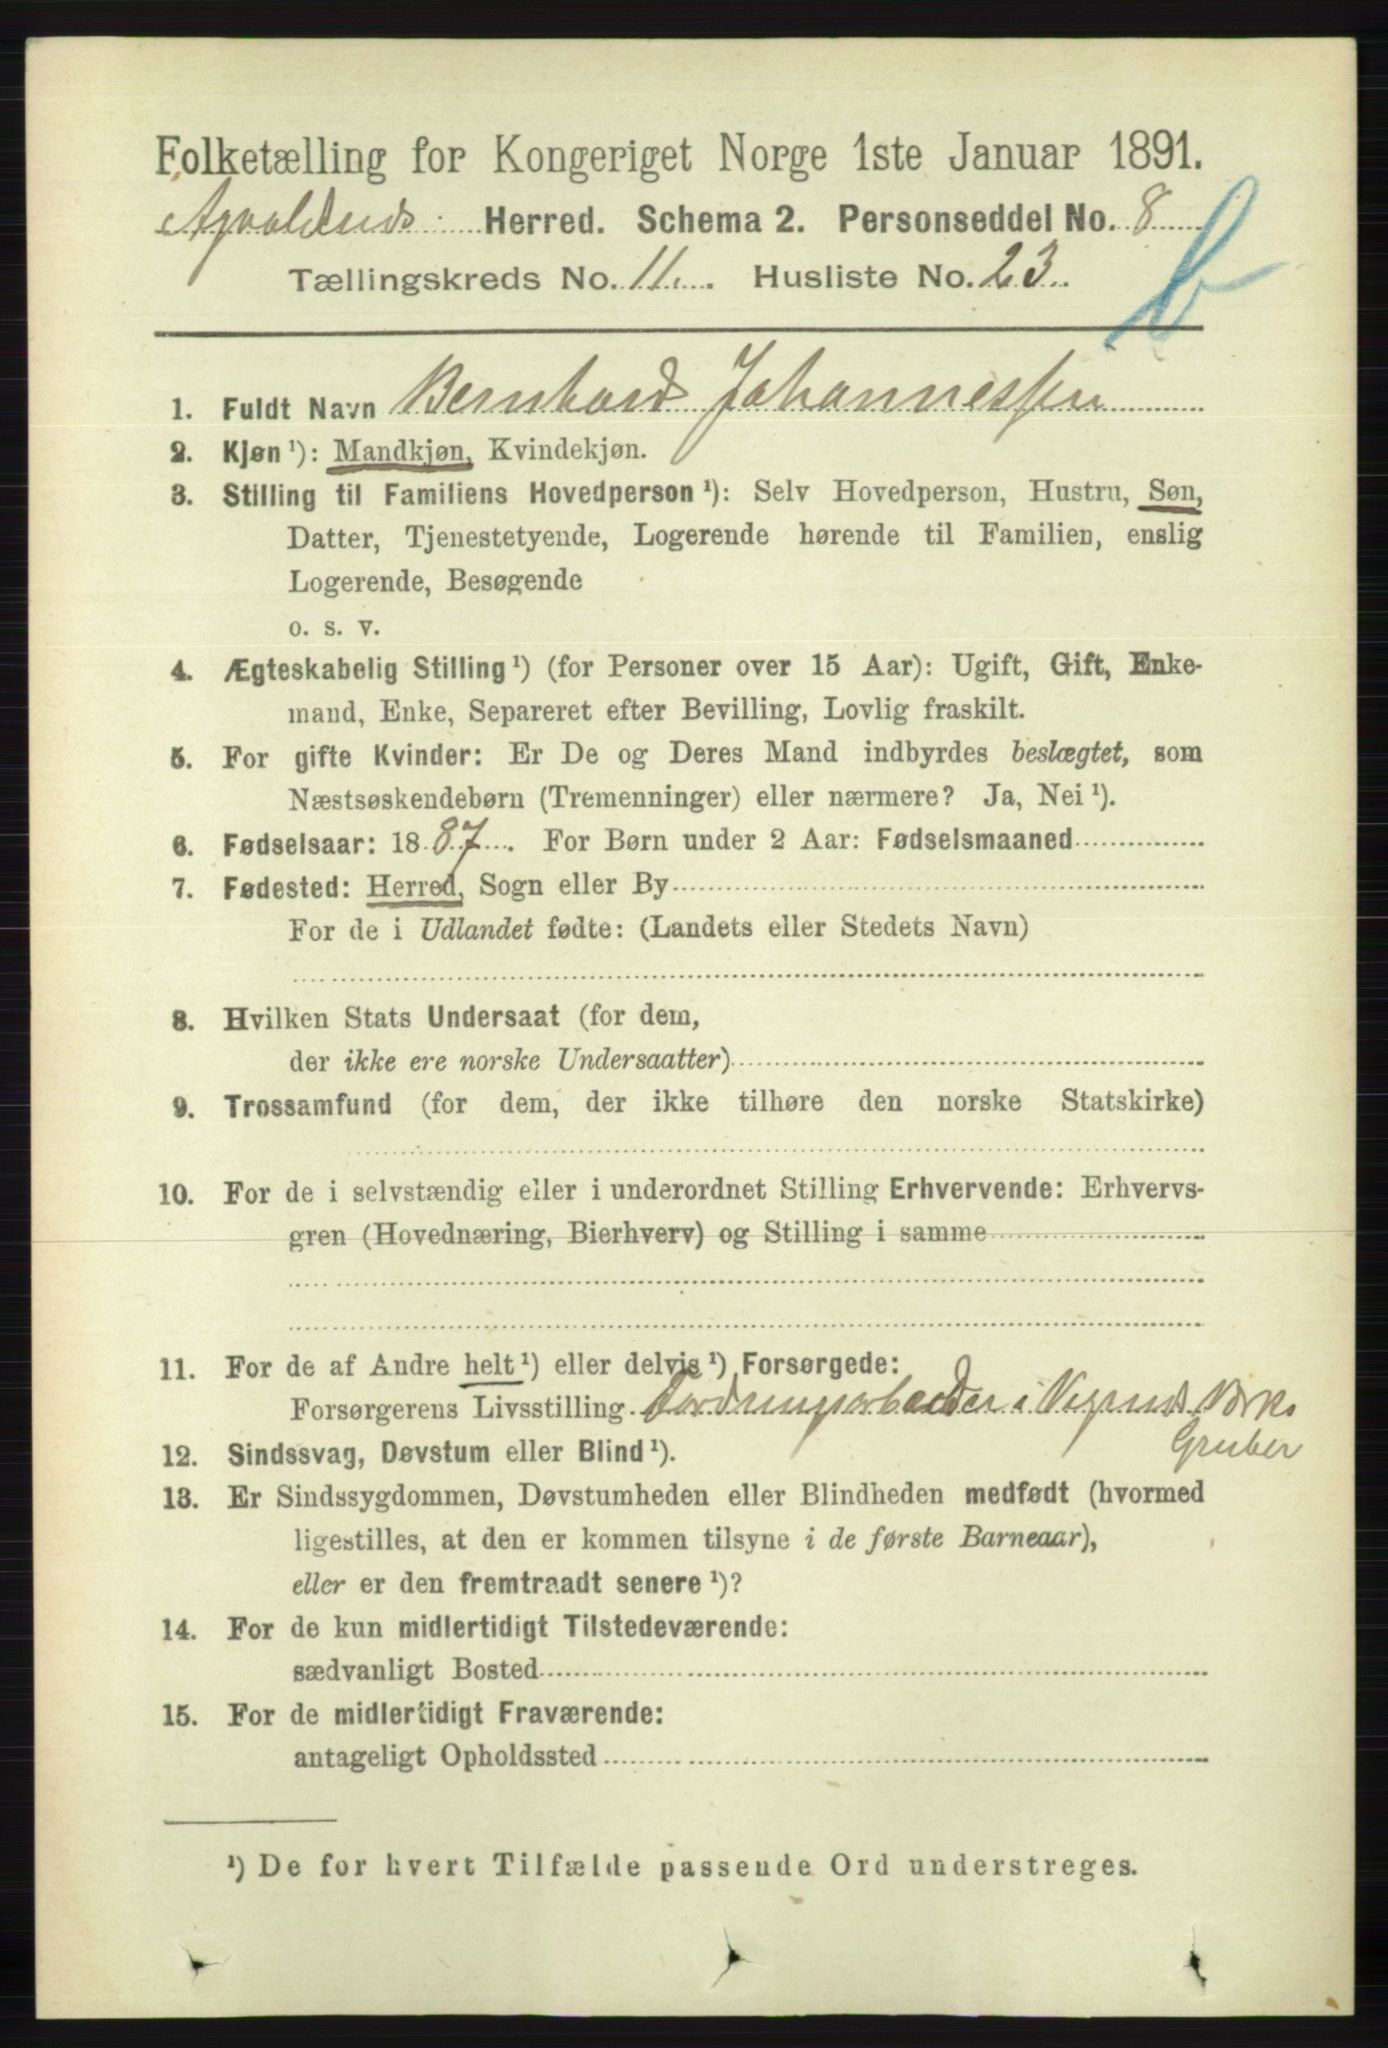 Folketælling for Kongeriget Norge 1ste Januar 1891.
Avaldsnes Herred. Schema 2. Personseddel No. 8
Tællingskreds No. 11. Husliste No. 23
b
1. Fuldt Navn Bernhard Johannessen
2. Kjøn ¹): Mandkjøn, Kvindekjøn.
3. Stilling til Familiens Hovedperson ¹): Selv Hovedperson, Hustru, Søn,
Datter, Tjenestetyende, Logerende hørende til Familien, enslig
Logerende, Besøgende
o. s. v.
4. Ægteskabelig Stilling ¹) (for Personer over 15 Aar): Ugift, Gift, Enke-
mand, Enke, Separeret efter Bevilling, Lovlig fraskilt.
5. For gifte Kvinder: Er De og Deres Mand indbyrdes beslægtet, som
Næstsøskendebørn (Tremenninger) eller nærmere? Ja, Nei ¹).
6. Fødselsaar: 1887. For Børn under 2 Aar: Fødselsmaaned
7. Fødested: Herred, Sogn eller By
For de i Udlandet fødte: (Landets eller Stedets Navn)
8. Hvilken Stats Undersaat (for dem,
der ikke ere norske Undersaatter)
9. Trossamfund (for dem, der ikke tilhøre den norske Statskirke)
10. For de i selvstændig eller i underordnet Stilling Erhvervende: Erhvervs-
gren (Hovednæring, Bierhverv) og Stilling i samme
11. For de af Andre helt ¹) eller delvis ¹) Forsørgede:
Forsørgerens Livsstilling Fordringsarbeider i Vigsnes Værks
Gruber
12. Sindssvag, Døvstum eller Blind ¹).
13. Er Sindssygdommen, Døvstumheden eller Blindheden medfødt (hvormed
ligestilles, at den er kommen tilsyne i de første Barneaar),
eller er den fremtraadt senere ¹)?
14. For de kun midlertidigt Tilstedeværende:
sædvanligt Bosted
15. For de midlertidigt Fraværende:
antageligt Opholdssted
¹) De for hvert Tilfælde passende Ord understreges.